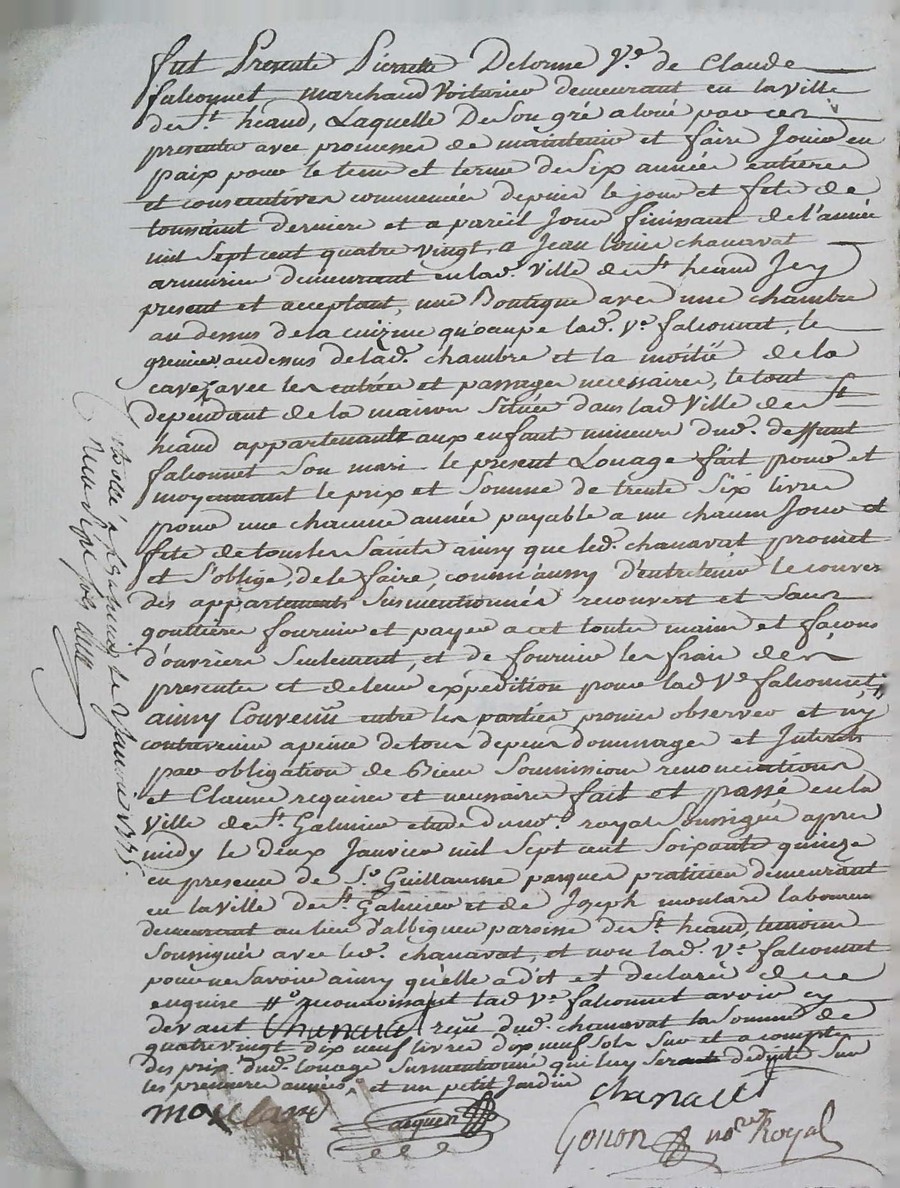 fut Presente Pierrette Delorme Ve. de Claude
falconnet marchand voiturier demeurant en la ville
de St. héand, Laquelle De Son gré a loué par ces
presentes avec promesses de maintenir et faire Jouir en
paix pour le tems et terme de Six années entieres
et consecutives commencées depuis le jour et fete de
toussaint derniere et a pareil Jour finissant de l'année
mil Sept cent quatre vingt, a Jean Louis chanavat
armurier demeurant en lad. ville de St. heand Jcy
present et acceptant, une Boutique avec une chambre
au dessus de la cuizine qu'ocupe lad. Ve. falconnet, le
grenier au dessus de lad. chambre et la moitié de la
cave, avec les entrées et passages necessaires, le tout
dependant de la maison Située dans lad Ville de St
heand appartenante aux enfant mineurs dud. deffunt
falconnet Son mari le present Louage fait pour et
moyennant le prix et Somme de trente Six livres
pour une chacune année payable a un chacun Jour et
fete de tous les Saints ainsy que led. chanavat promet
et S'oblige, de le faire, comm'aussy d'entretenir le couvert
des appartements Susmentionnés recouvert et Sans
gouttieres fournir et payer a cet toutes mains et façons
d'ouvriers Seulement, et de fournir les frais des
presentes et de leur expedition pour lad Ve falconnet;
ainsy Convenu entre les parties promis observer et n'y
contrevenir a peine de tous depens dommages et Interets
par obligation de Biens Soumissions renonciations
et Clauses requises et necessaires fait et passé en la
Ville de St. Galmier etude du nore. royal Soussigné apres
midy le deux Janvier mil Sept cent Soixante quinze
en presence de Sr. Guillaume pasquer praticien demeurant
en la Ville de St. Galmier et de Joseph montard laboureur
demeurant au lieu d'albigneu paroisse de St. heand, temoins
Soussignés avec led. chanavat, et non lad. Ve. falconnet
pour ne Savoir ainsy qu'elle a dit et declaré de ce
enquise #° reconnoissant lad Ve falconnet avoir cy
devant reçu dud. chanavat la Somme de
quatre vingt dix neuf livres dix neuf Sols Sur et a compte
des prix dud. louage Susmentionné qui luy Serat deduite Sur
les premieres années, et un petit Jardin
chanavat
montard
pasquer
Gonon nore Royal
Controllé a St Galmier le Janvier 1775.
Reçu Sept Sols